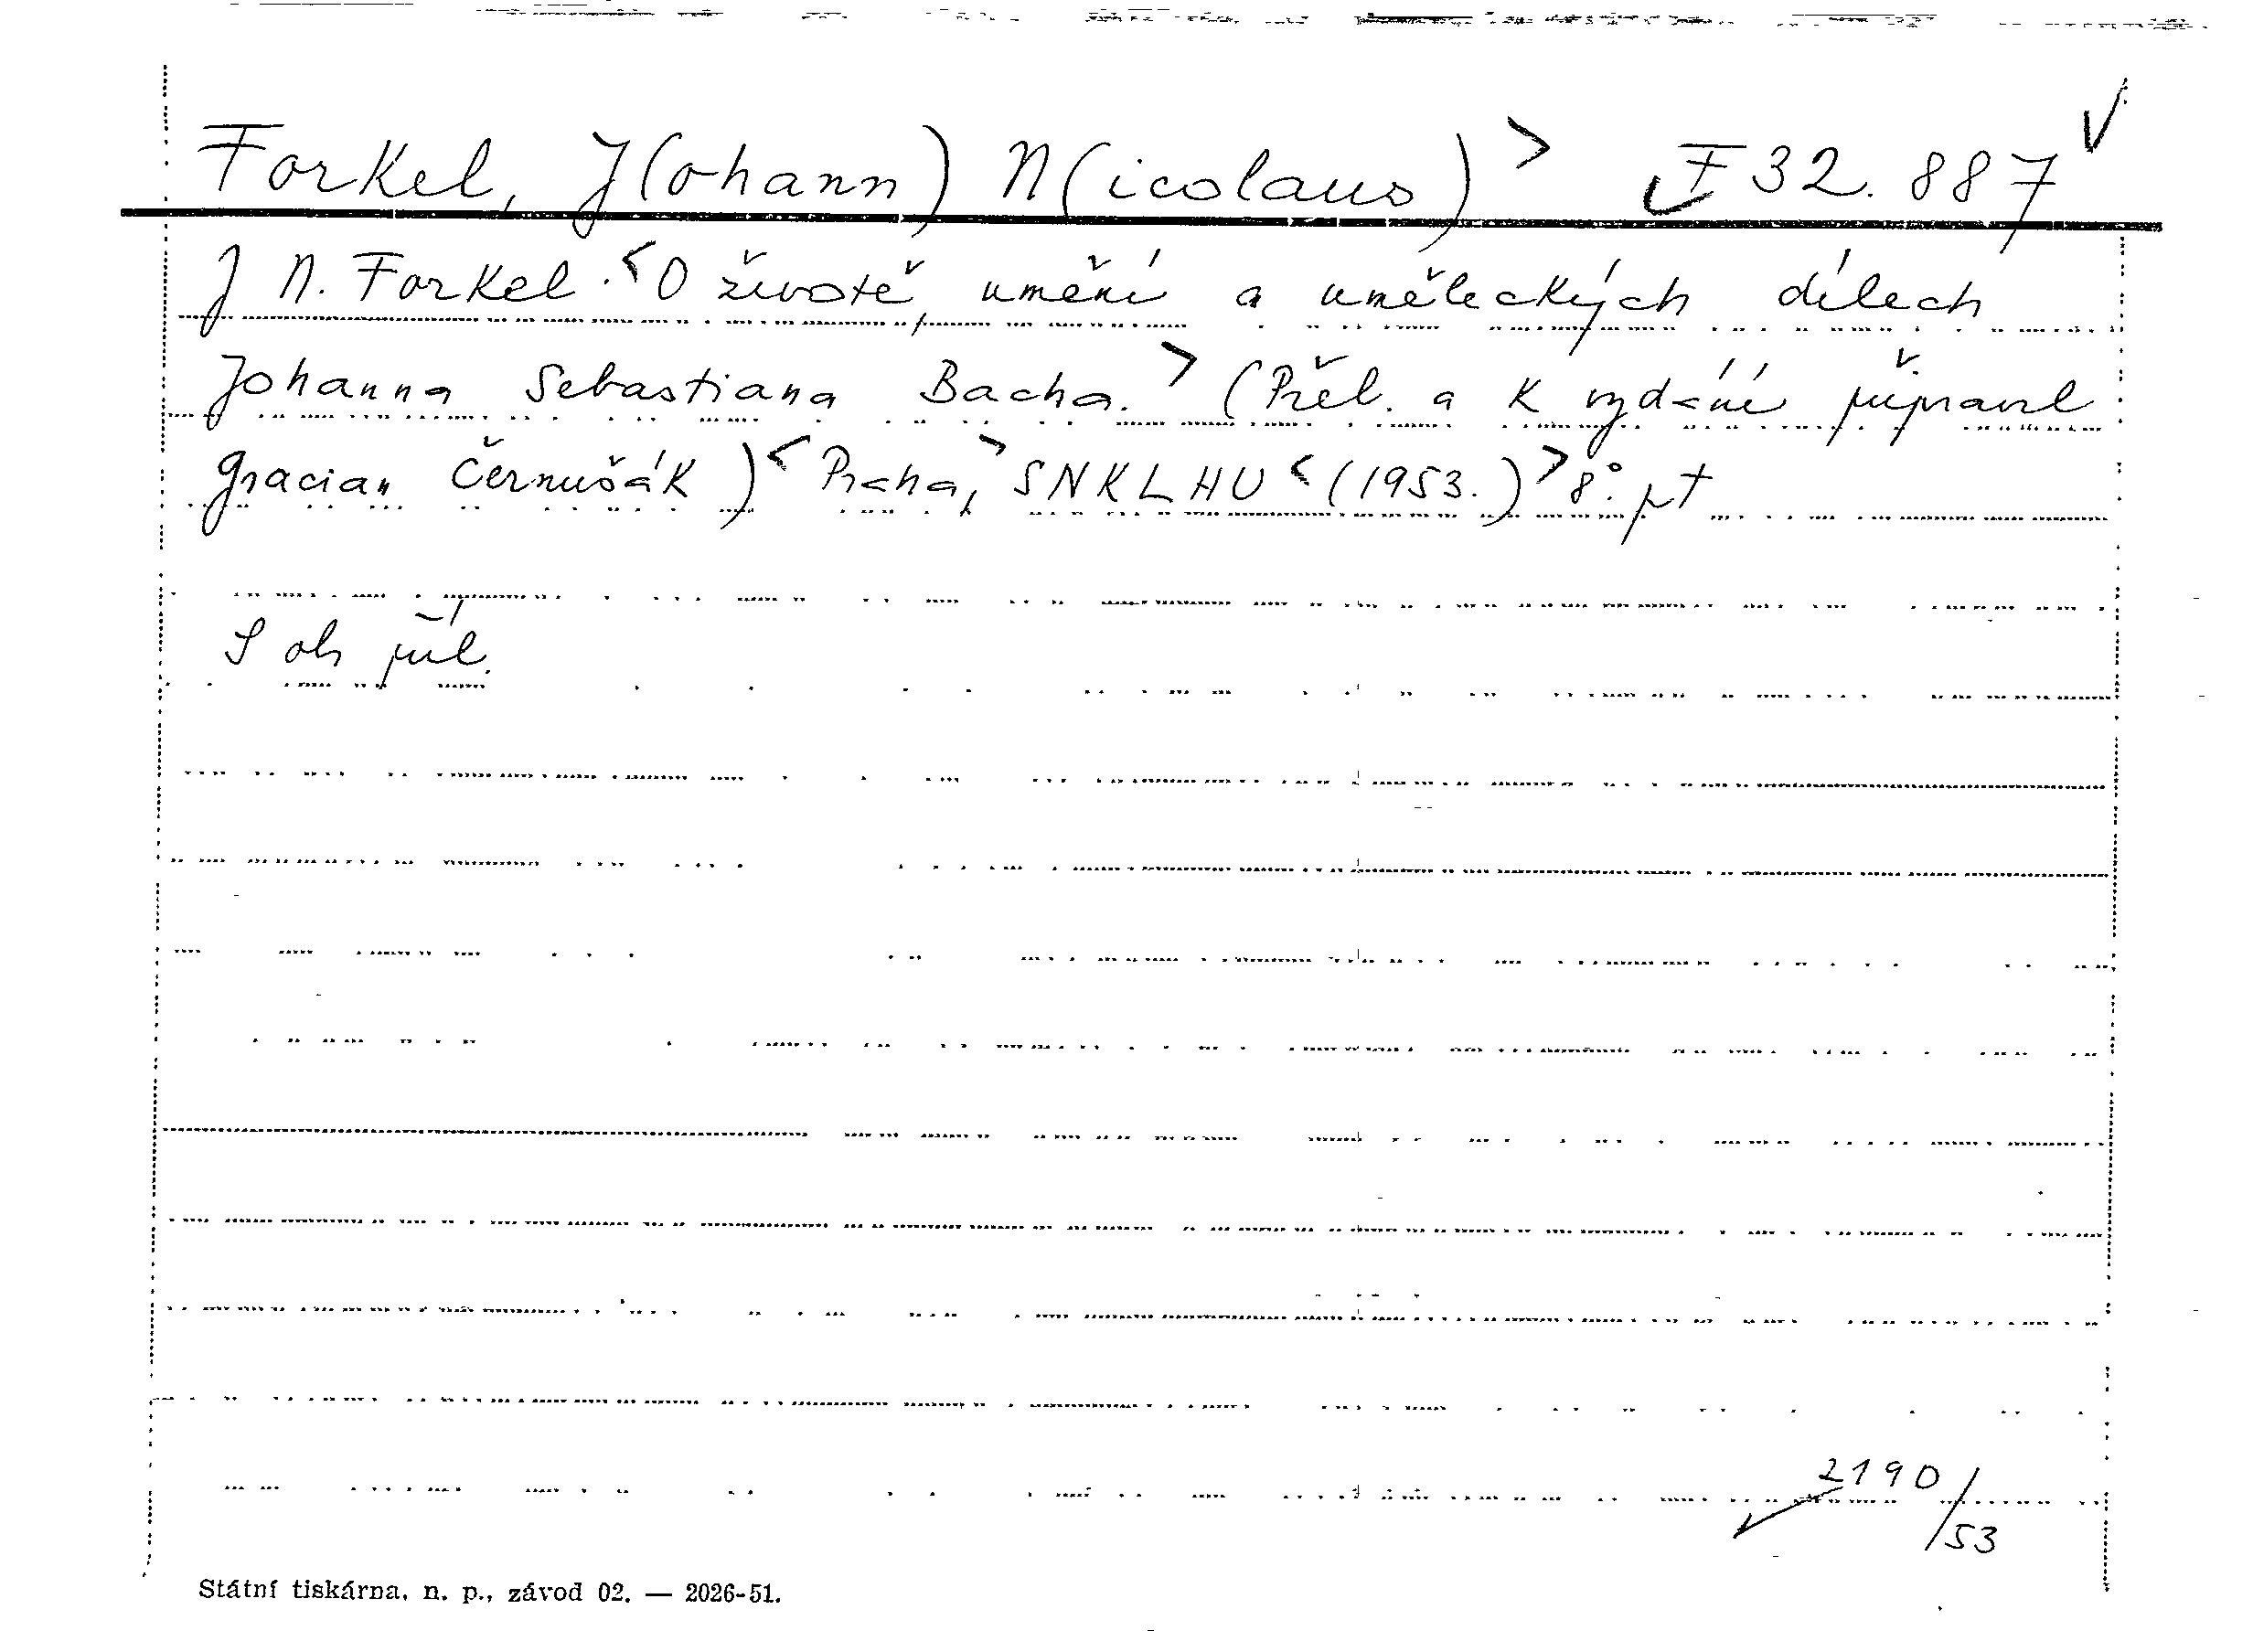 Forkel, J(ohann) N(icolaus) > F 32.887
J N. Forkel. < O životě, umění a uměleckých dílech
Johanna Sebastiana Bacha. > (Přel. a k vydání připravil
Gracian Černušák) < Praha, > SNKLHU < (1953.) > 8°. pt
S ob příl.
2190/53
Státní tiskárna, n. p., závod 02. — 2026-51.